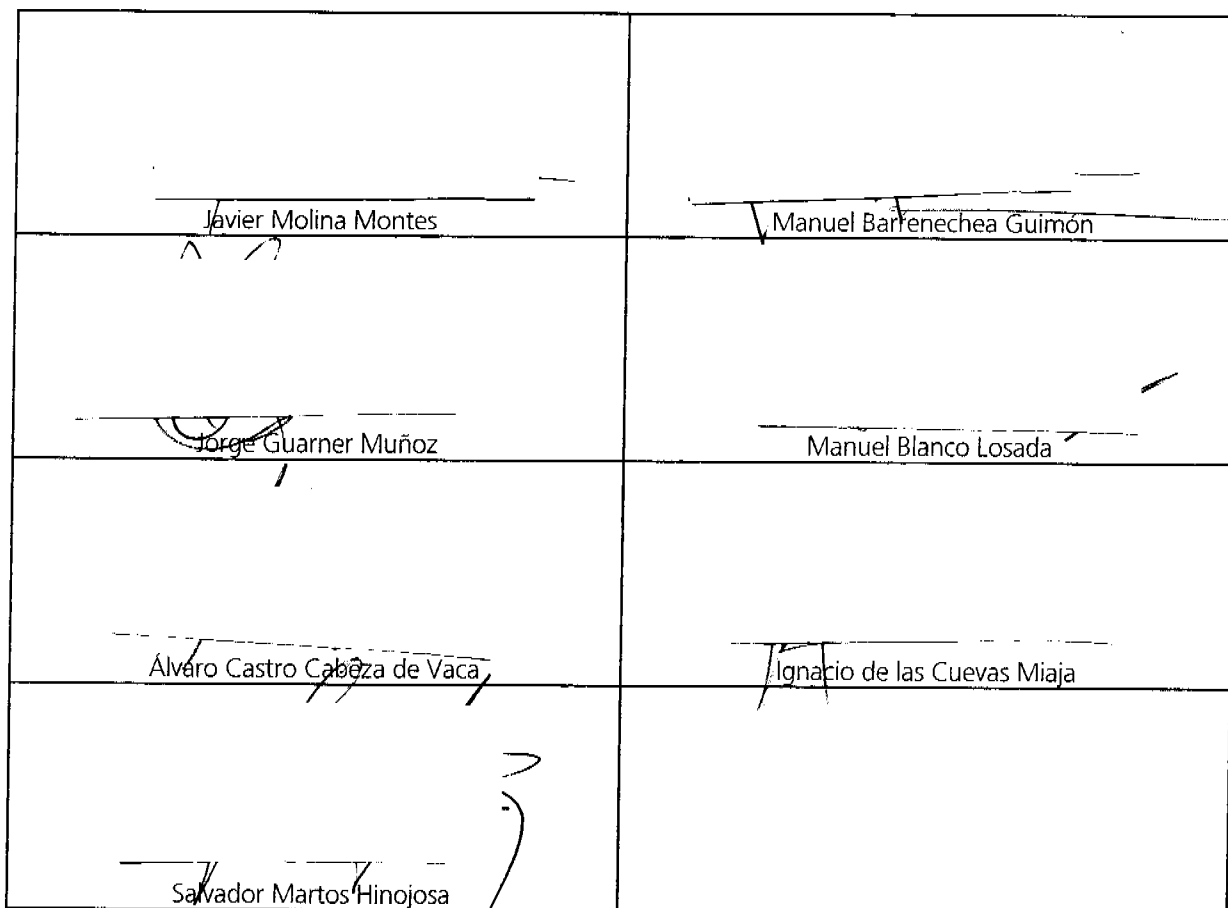 Javier Molina Montes
Manuel Barrenechea Guimón
Jorge Guarner Muñoz
Manuel Blanco Losada
Álvaro Castro Cabeza de Vaca
Ignacio de las Cuevas Miaja
Salvador Martos Hinojosa